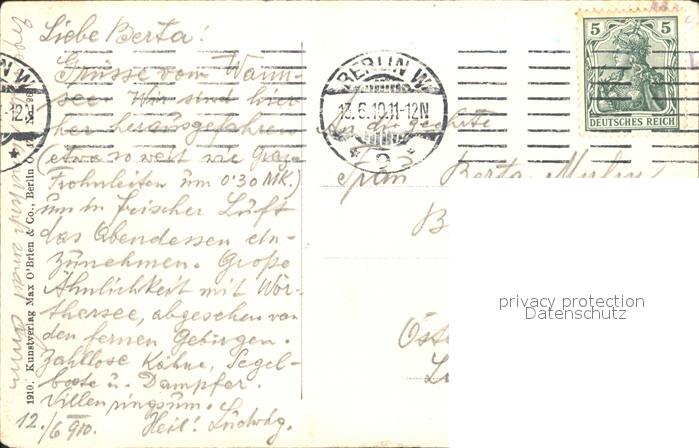 Liebe Berta!
Grüsse vom Wann-
see. Wir sind hier-
her herausgefahren
(etwa so weit wie Graz-
Frohnleiten um 0'30 MK.)
um in frischer Luft
das Abendessen ein-
zunehmen. Große
Ähnlichkeit mit Wör-
thersee, abgesehen von
den fernen Gebirgen.
Zahllose Kähne, Segel-
boote u. Dampfer.
Villen ringsum.
12./6 910. Heil! Ludwig.
1910. Kunstverlag Max O'Brien & Co., Berlin
N W
-12N
BERLIN W
13.6.10.11-12N
9
5 5
DEUTSCHES REICH
Berta
B
Öste
privacy protection
Datenschutz